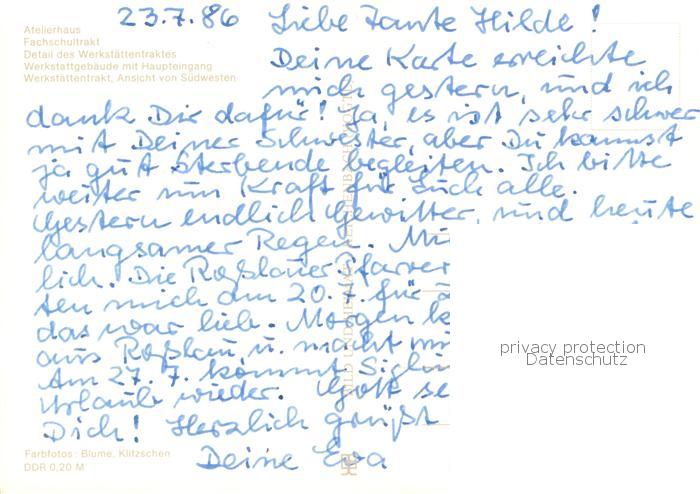 23.7.86 Liebe Tante Hilde!
Atelierhaus
Fachschultrakt
Detail des Werkstättentraktes
Werkstattgebäude mit Haupteingang
Werkstättentrakt, Ansicht von Südwesten
Deine Karte erreichte
mich gestern, und ich
dank Dir dafür! Ja, es ist sehr schwer
mit Deiner Schwester, aber Du kannst
ja gut Sterbende begleiten. Ich bitte
weiter um Kraft für Euch alle.
Gestern endlich Gewitter, und heute
langsamer Regen. Mi
lich. Die Roßlauer Pfarrer
ten mich am 20.7. für
das war lieb. Morgen k
aus Roßlau, u. macht mi
Am 27.7. kommt Siglin
Urlaub wieder. Gott se
Dich! Herzlich grüßt
Deine Eva
privacy protection
Datenschutz
Farbfotos: Blume, Klitzschen
DDR 0,20 M